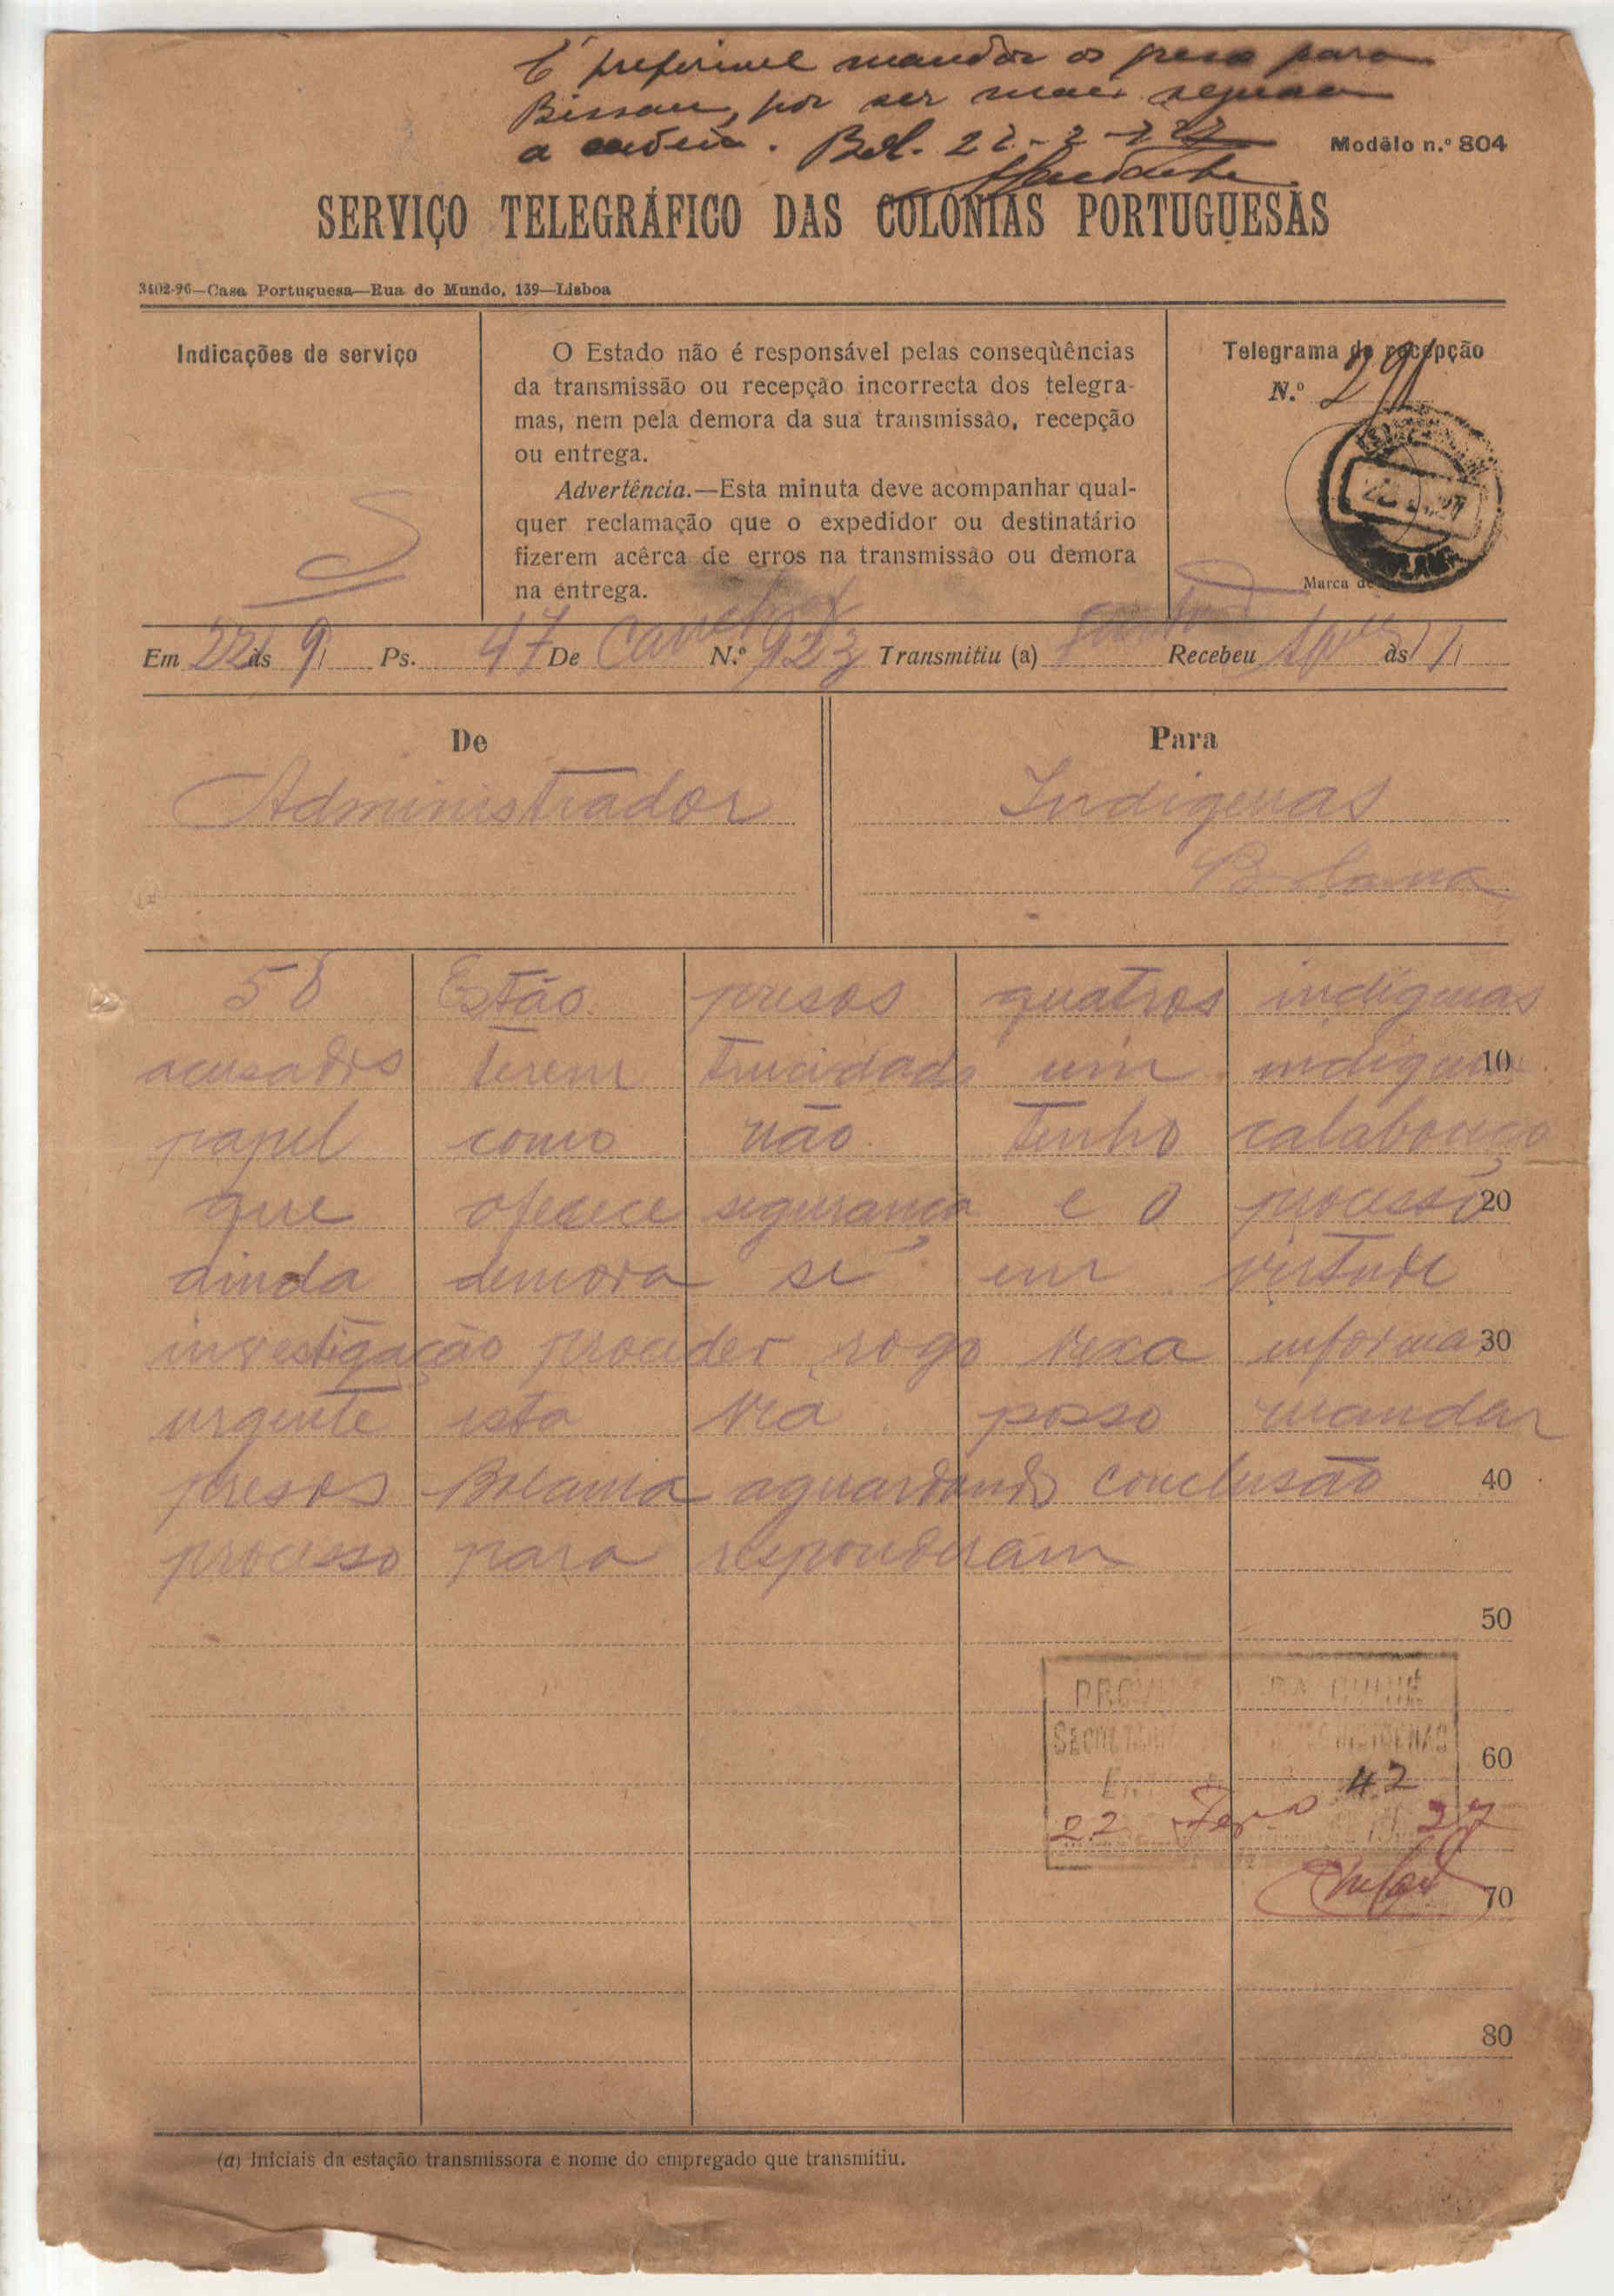 É preferivel mandar os presos para
Bissau, por ser mais segura
a cadeia. Bol. 22-2-27
Modêlo n.º 804
SERVIÇO TELEGRÁFICO DAS COLÓNIAS PORTUGUESAS
3402-96—Casa Portuguesa—Rua do Mundo, 139—Lisboa
Indicações de serviço
O Estado não é responsável pelas conseqùências
da transmissão ou recepção incorrecta dos telegra-
mas, nem pela demora da sua transmissão, recepção
ou entrega.
Advertência.—Esta minuta deve acompanhar qual-
quer reclamação que o expedidor ou destinatário
fizerem acêrca de erros na transmissão ou demora
na entrega.
Telegrama de recepção
N.º 291
Marca de
S
Em 22 às 9 Ps. 47 De N.º 923 Transmitiu (a) Recebeu às 11
De
Administrador
Para
Indigenas
Bolama
58 Estão presos quatros indigenas
acusados terem trucidado um indigena 10
papel como não tenho calabouço
que ofecece segurança e o processo 20
ainda demora se em virtude
investigação proceder rogo vexa informar 30
urgente esta via posso mandar
presos Bolama aguardando conclusão 40
processo para responderam
50
PROVINCIA DA GUINÉ
INDIGENAS
60
42
22 27
70
80
(a) Iniciais da estação transmissora e nome do empregado que transmitiu.